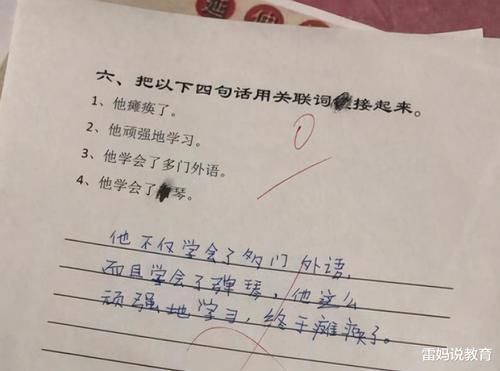 六、把以下四句话用关联词接起来。
1、他瘫痪了。
2、他顽强地学习。
3、他学会了多门外语。
4、他学会了琴。
0
他不仅学会了多门外语,
而且学会了弹琴,他这么
顽强地学习,终于瘫痪了。
雷妈说教育